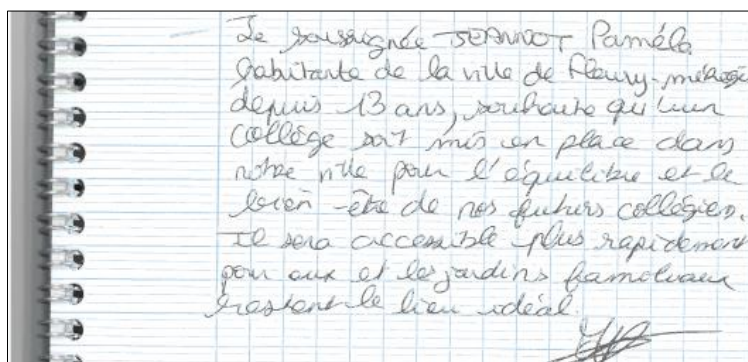 Je soussignée JEANNOT Paméla
habitante de la ville de Fleury-mérogis
depuis 13 ans, souhaite qu'un
collège soit mis en place dans
notre ville pour l'équilibre et le
bien-être de nos futurs collégiens.
Il sera accessible plus rapidement
pour eux et les jardins familiaux
restent le lieu idéal.